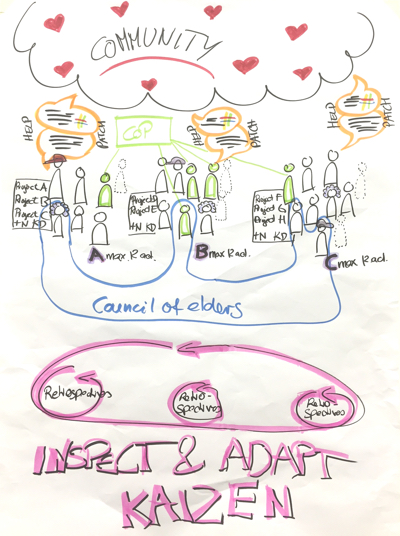 COMMUNITY
HELP
PATCH
CoP
HELP
PATCH
HELP
PATCH
Project A
Project B
Project C
+N KD
Project D
Project E
+N KD
Project F
Project G
Project H
+N KD
A max Rad.
B max Rad.
C max Rad.
Council of elders
Retrospectives
Retro-
spectives
Retro-
spectives
INSPECT & ADAPT
KAIZEN